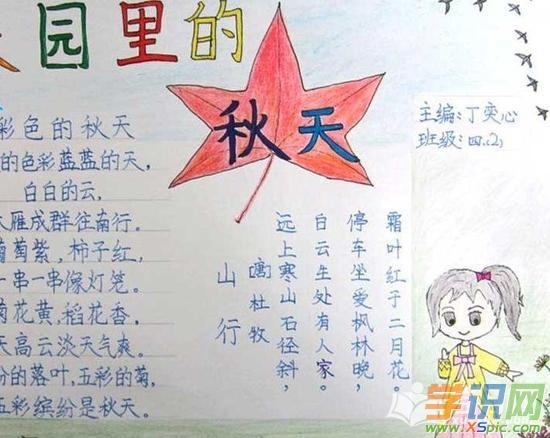 园里的
秋天
彩色的秋天
的色彩蓝蓝的天,
白白的云,
大雁成群往南行。
葡萄紫,柿子红,
一串一串像灯笼。
菊花黄,稻花香,
天高云淡天气爽。
纷的落叶,五彩的菊,
五彩缤纷是秋天。
山行
唐杜牧
远上寒山石径斜,
白云生处有人家。
停车坐爱枫林晚,
霜叶红于二月花。
主编:丁奕心
班级:四.(2)
学识网
www.XSpic.com